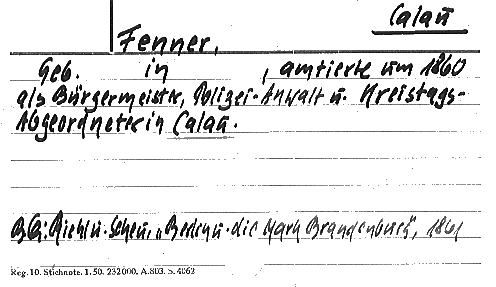 Calau
Fenner,
Geb. in , amtierte um 1860
als Bürgermeister, Polizei-Anwalt u. Kreistags-
Abgeordneter in Calau.
BQ: Riehl u. Scheu, „Berlin u. die Mark Brandenburg", 1861
Reg. 10. Stichnote. 1. 50. 232000. A. 803. S. 4062